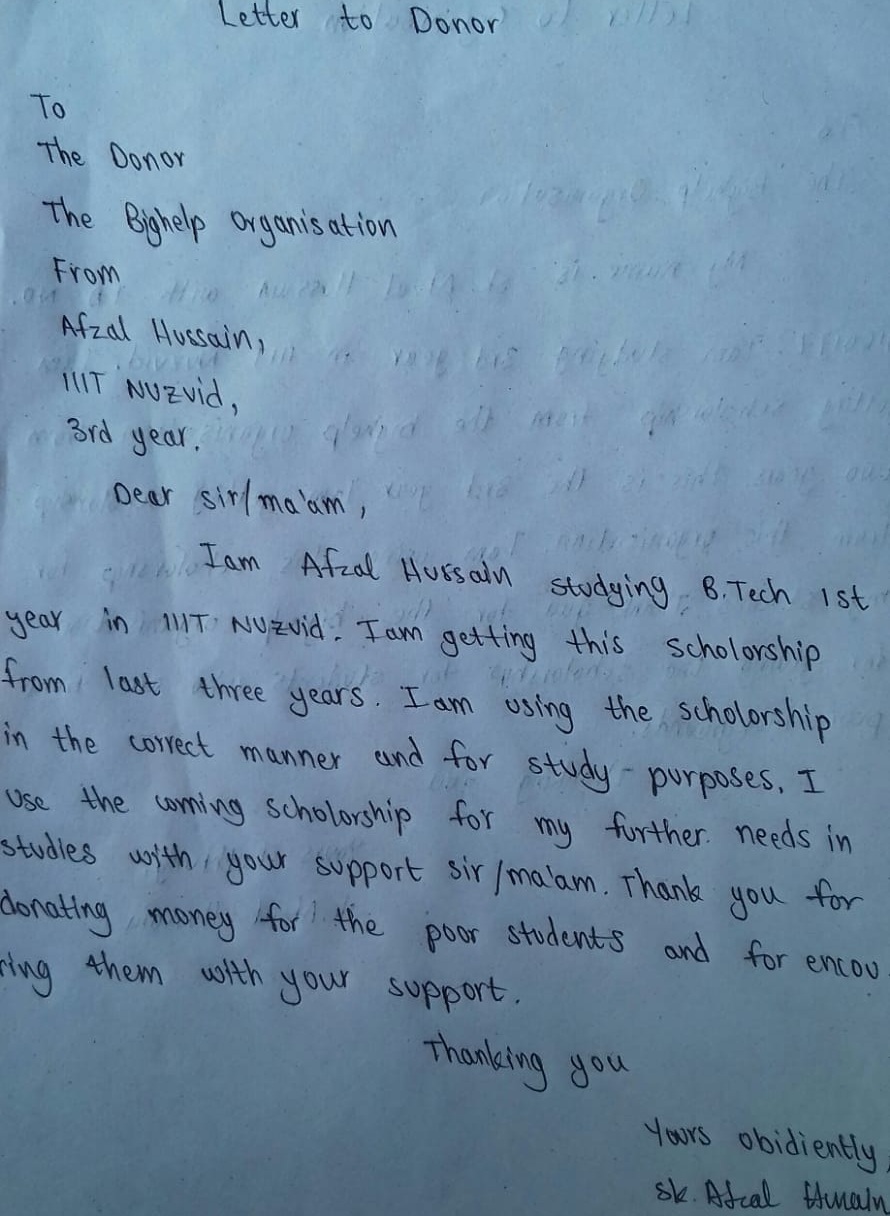 Letter to Donor
To
The Donor
The Bighelp Organisation
From
Afzal Hussain,
IIIT NUZVid,
3rd year.
Dear sir/ma'am,
I am Afzal Hussain studying B.Tech 1st
year in IIIT NUZVid. I am getting this scholorship
from last three years. I am using the scholorship
in the correct manner and for study purposes. I
use the coming scholorship for my further needs in
studies with your support sir/ma'am. Thank you for
donating money for the poor students and for encou
ring them with your support.
Thanking you
Yours obidiently,
Sk. Afzal